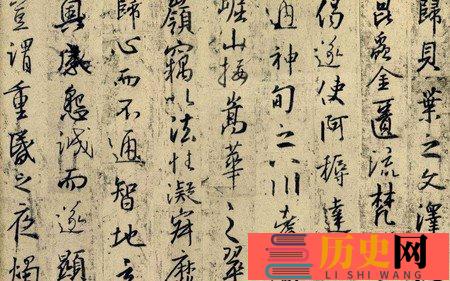 歸貝葉之文澤
昆蟲金匱流梵
偈遂使阿耨達
通神甸之八川耆
崛山接嵩華之翠
嶺竊以法性凝寂靡
歸心而不通智地玄
奧感懇誠而遂顯
豈謂重昏之夜燭
历史网
LI SHI WANG